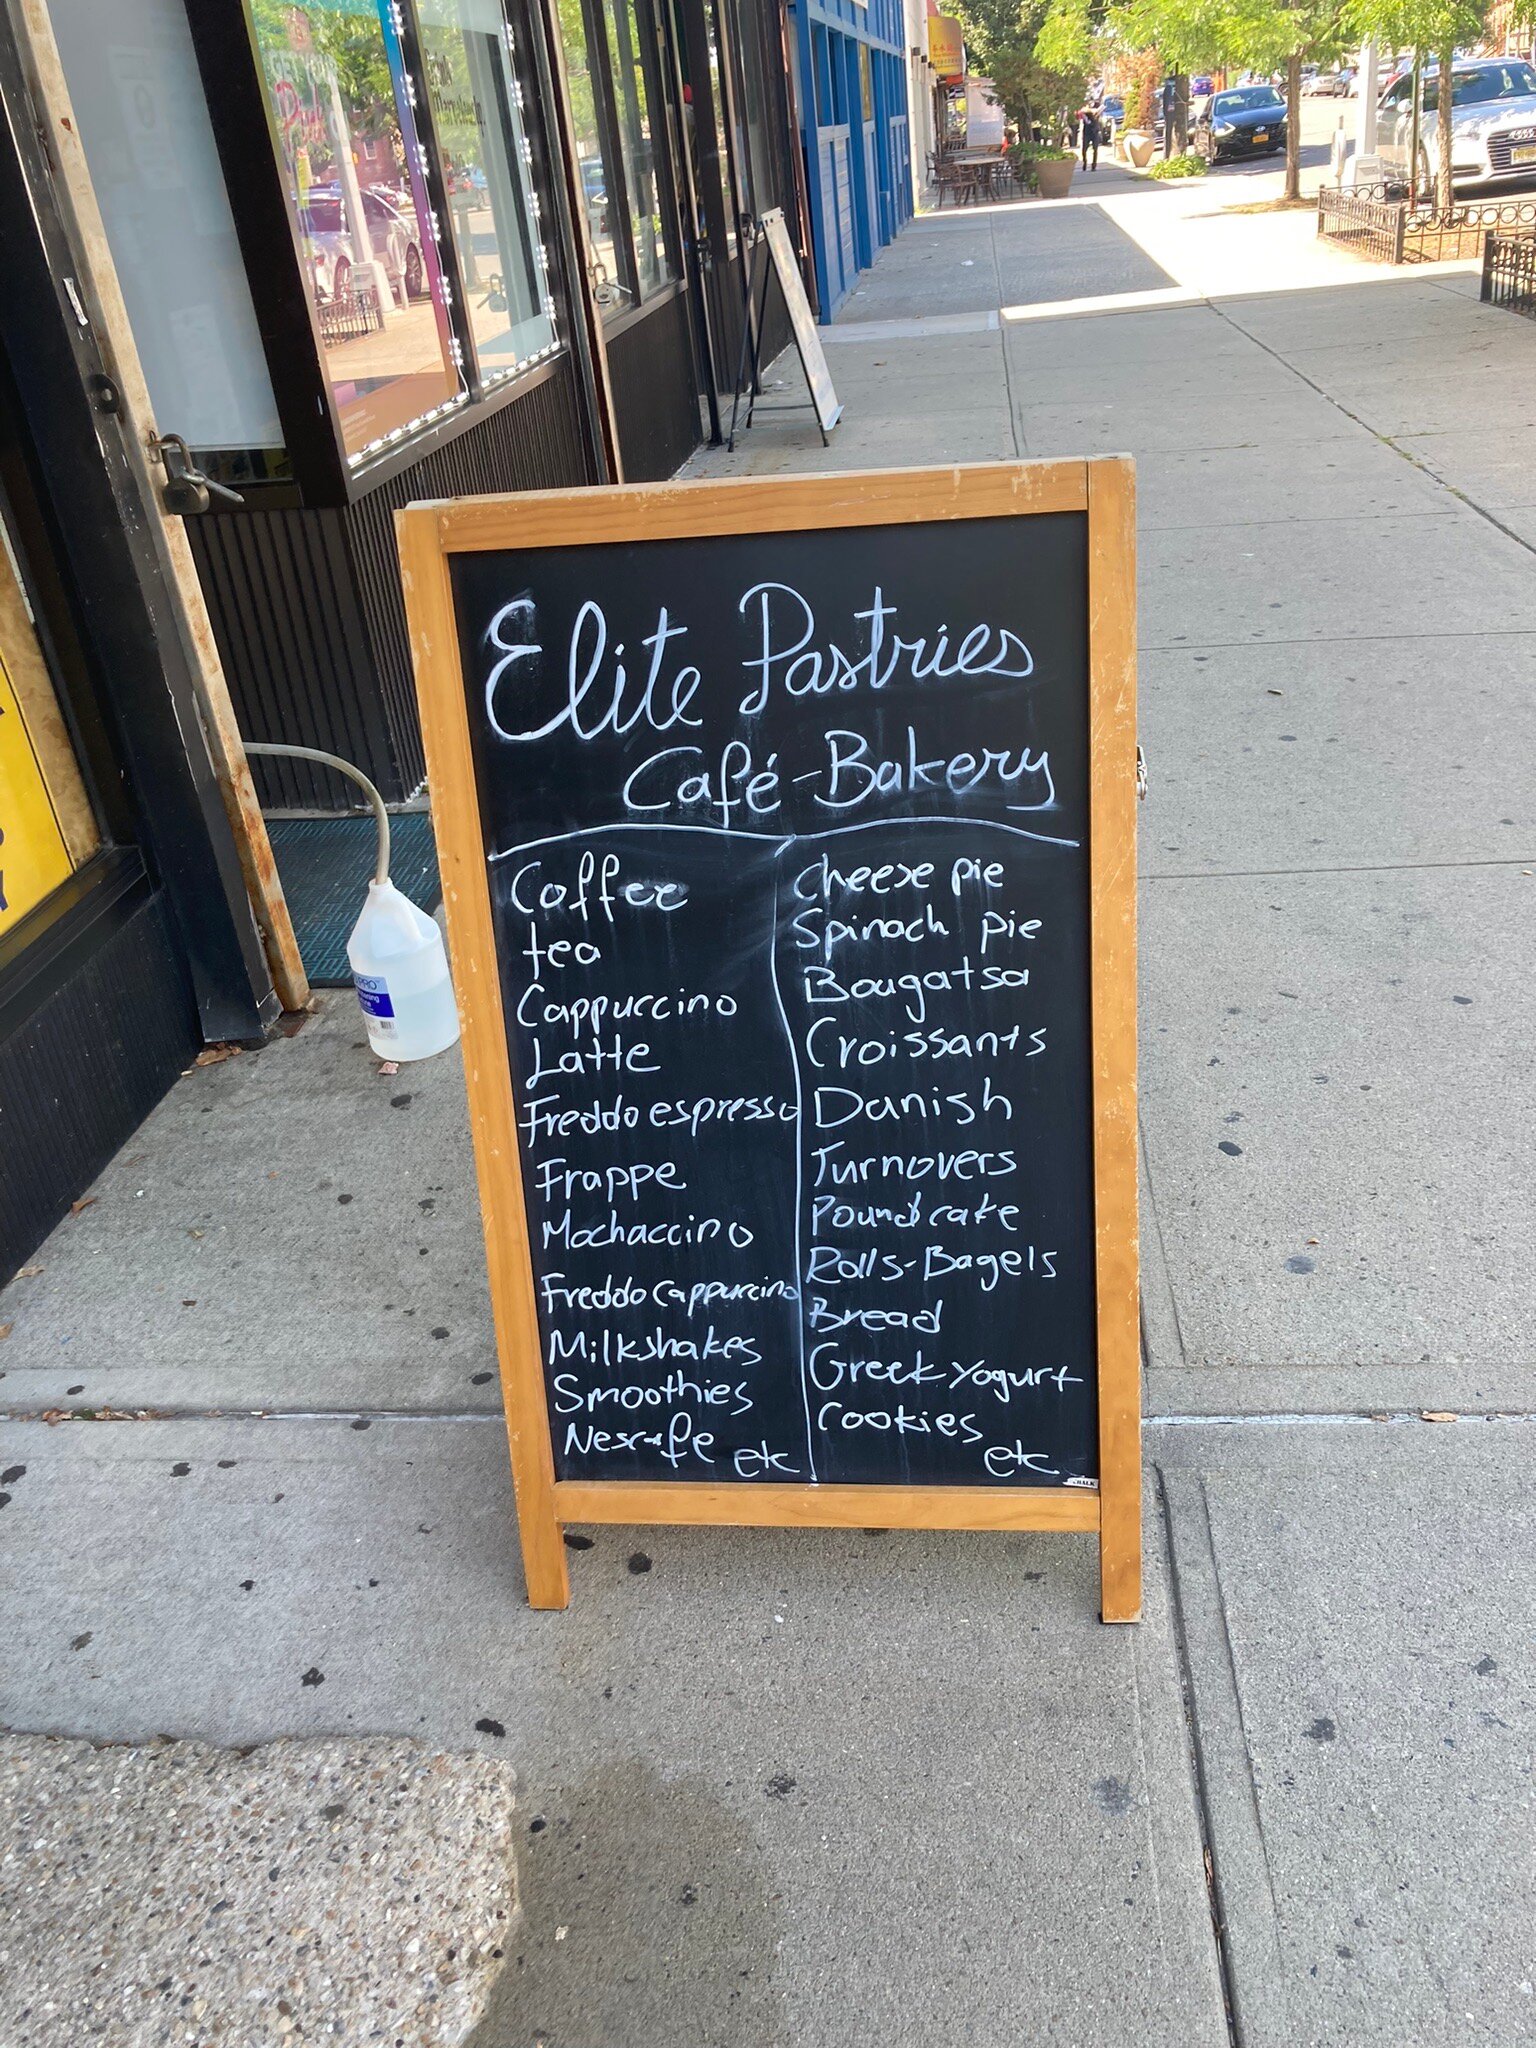 Elite Pastries
Café-Bakery
Coffee
tea
Cappuccino
Latte
Freddo espresso
Frappe
Mochaccino
Freddo cappuccino
Milkshakes
Smoothies
Nescafe etc
Cheese pie
Spinach pie
Bougatsa
Croissants
Danish
Turnovers
Pound cake
Rolls-Bagels
Bread
Greek Yogurt
Cookies
etc